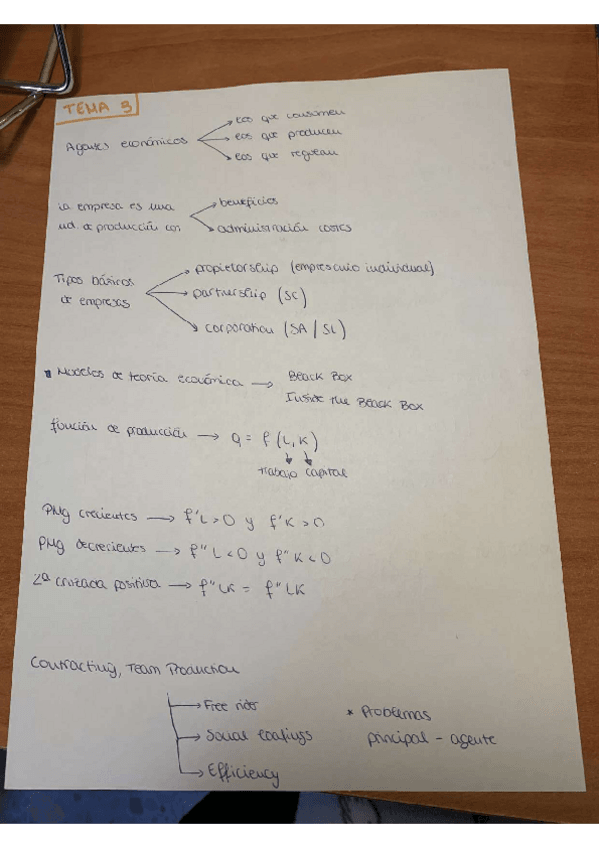 TEMA 3
Agentes económicos → los que consumen
→ los que producen
→ los que regulan
la empresa es una ud. de producción con → beneficios
→ administración costes
Tipos básicos de empresas → propietorship (empresario individual)
→ partnership (SC)
→ corporation (SA / SL)
Modelos de teoría económica → Black Box
Inside the Black Box
función de producción → Q = f (L, K)
trabajo capital
PMg crecientes → f'L > 0 y f'K > 0
PMg decrecientes → f''L < 0 y f''K < 0
2ª cruzada positiva → f''LK = f''LK
Contracting, Team Production
→ Free rider
→ Social loafings
→ Efficiency
* Problemas
principal - agente